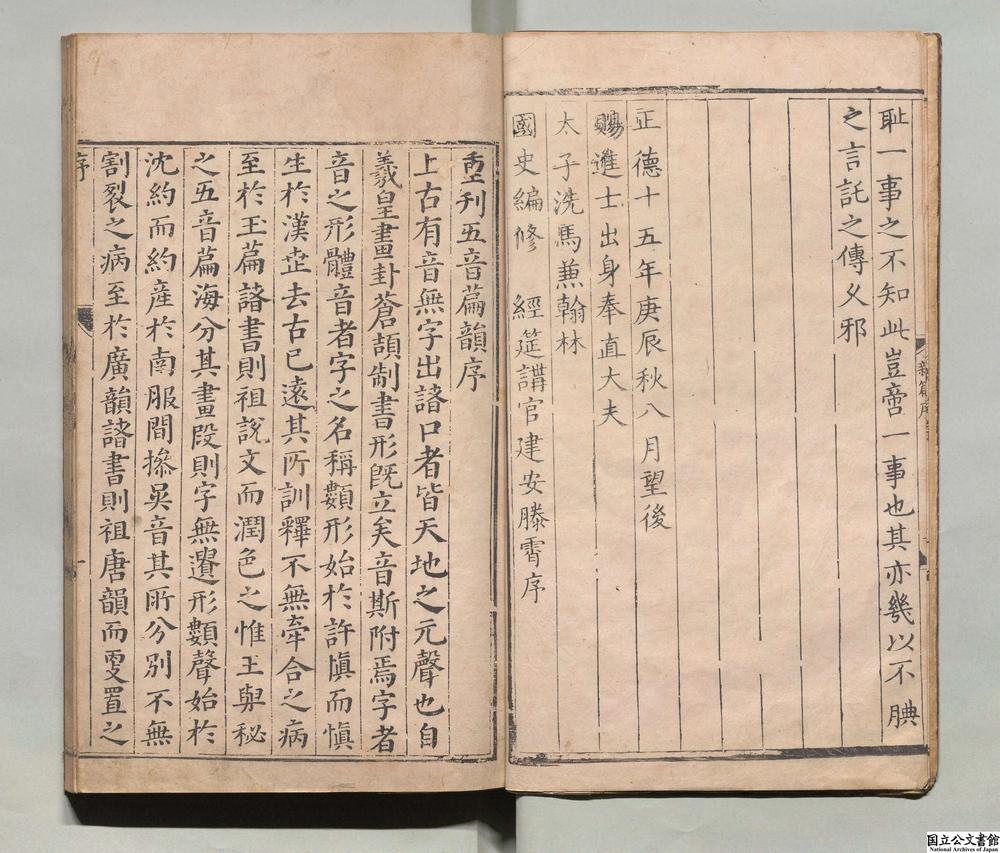 耻一事之不知此豈啻一事也其亦幾以不腆
之言託之傳乂邪
正德十五年庚辰秋八月望後
賜進士出身奉直大夫
太子洗馬兼翰林
國史編修 經筵講官建安滕霄序
重刊五音篇韻序
上古有音無字出諸口者皆天地之元聲也自
羲皇畫卦蒼頡制書形旣立矣音斯附焉字者
音之形體音者字之名稱顙形始於許愼而愼
生於漢世去古已遠其所訓釋不無牽合之病
至於玉篇諸書則祖說文而潤色之惟玉與秘
之五音篇海分其畫段則字無遺形顙聲始於
沈約而約産於南服間摻吳音其所分別不無
割裂之病至於廣韻諸書則祖唐韻而更置之
序
国立公文書館
National Archives of Japan